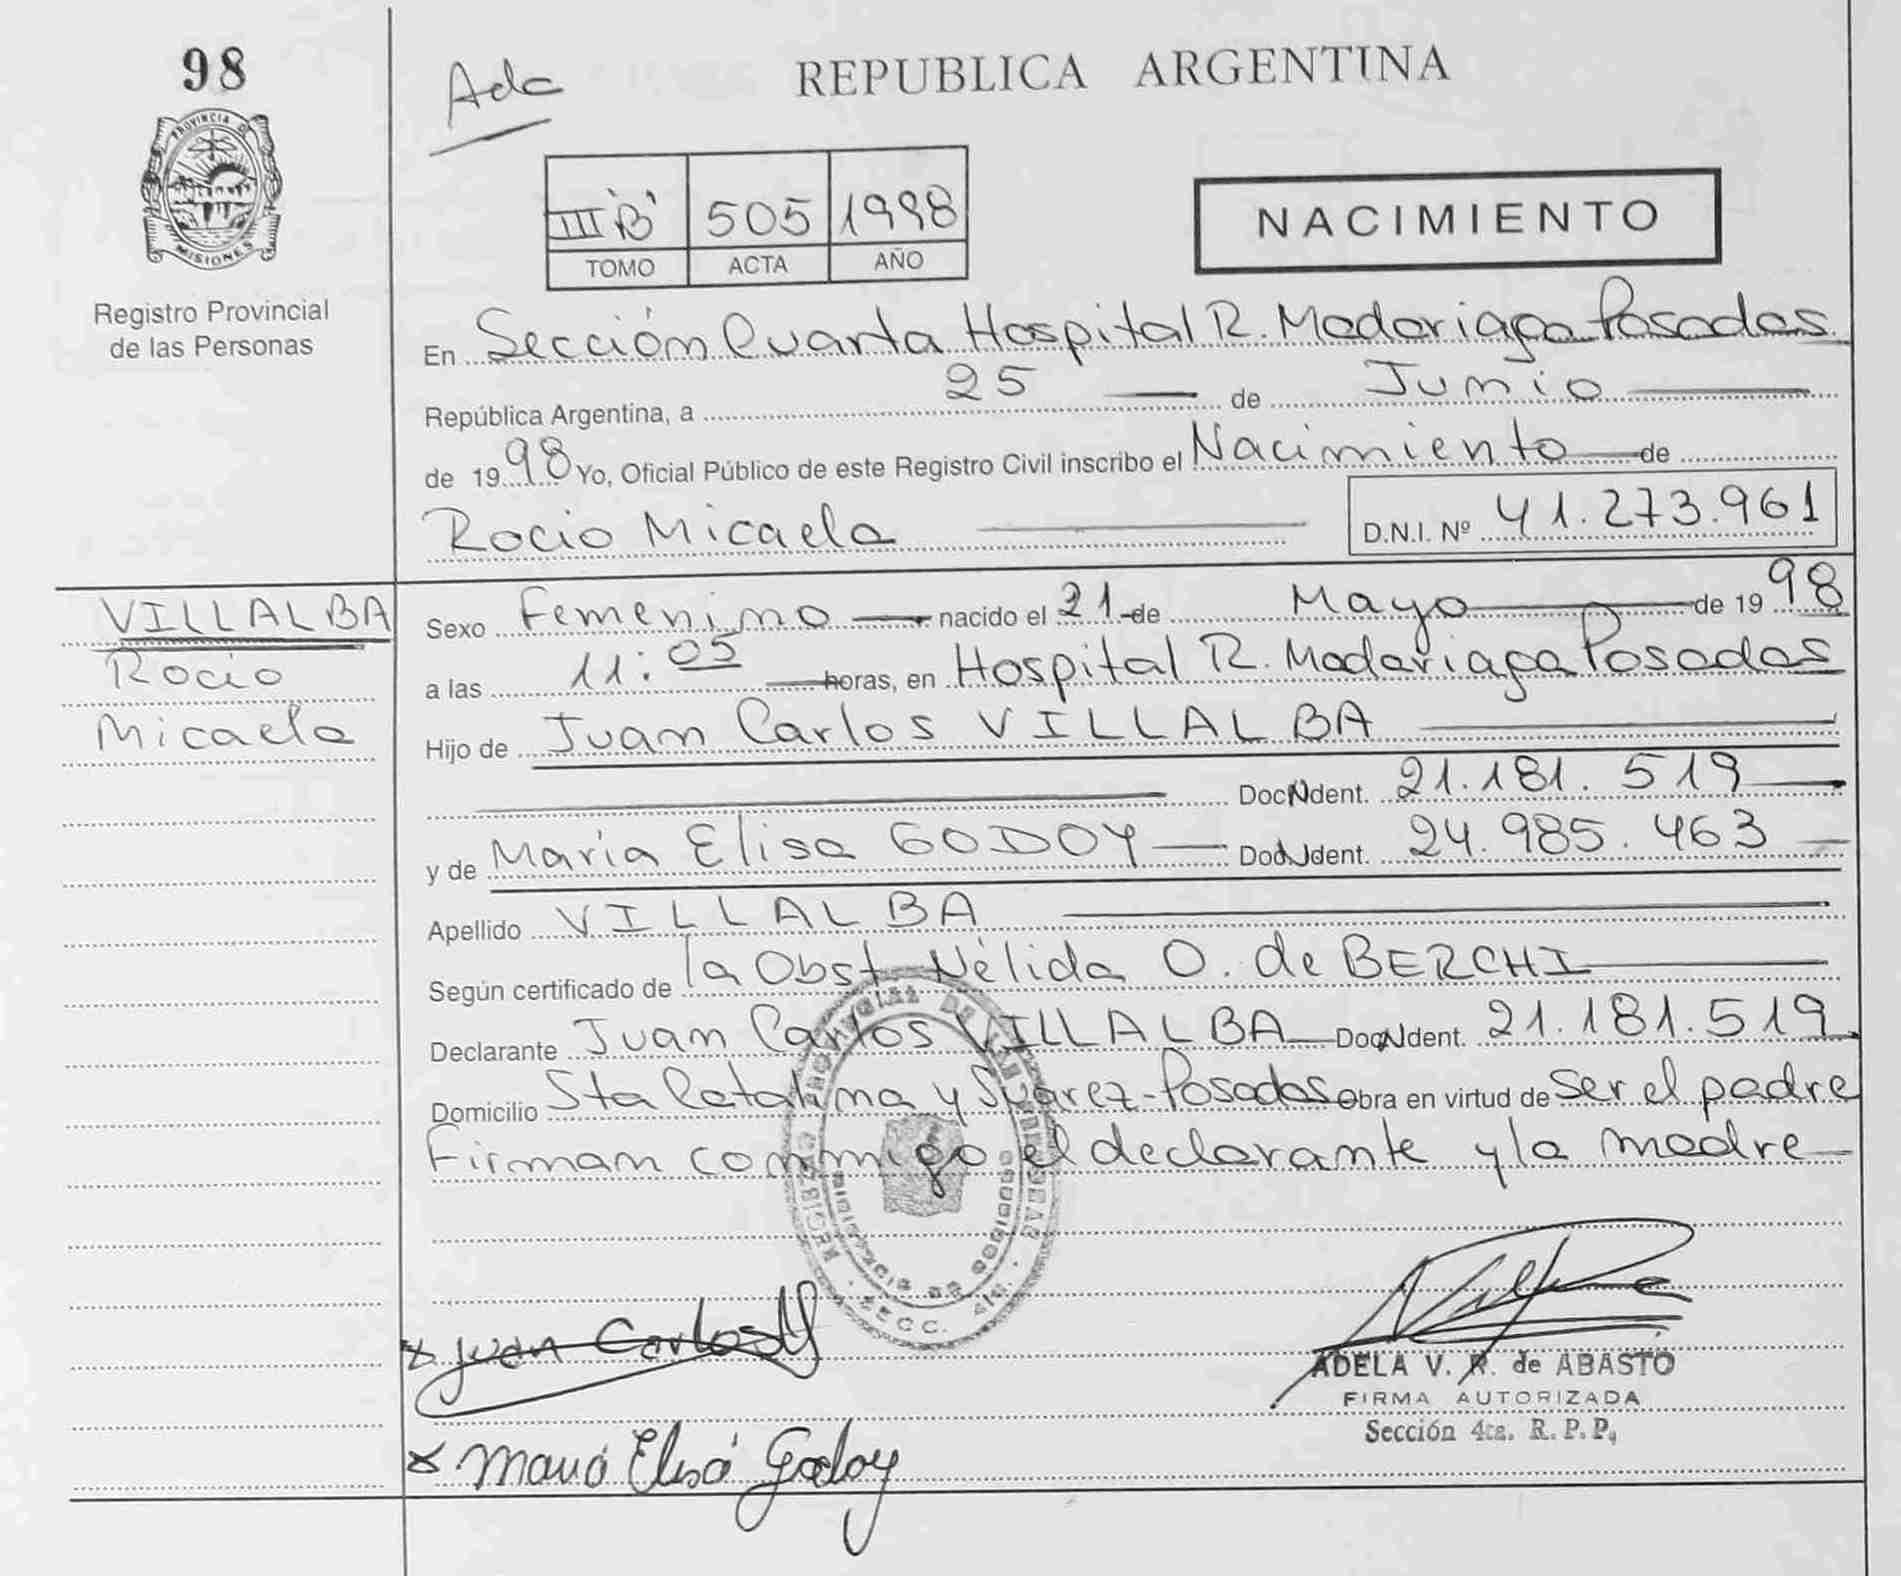 98
Ada
REPUBLICA ARGENTINA
PROVINCIA DE MISIONES
III "B" 505 1998
TOMO ACTA AÑO
NACIMIENTO
Registro Provincial
de las Personas
En Sección Cuarta Hospital R. Madariaga Posadas
República Argentina, a 25 de Junio
de 1998 Yo, Oficial Público de este Registro Civil inscribo el Nacimiento de
Rocio Micaela
D.N.I. Nº 41.273.961
VILLALBA
Rocio
Micaela
Sexo Femenino nacido el 21 de Mayo de 1998
a las 11:05 horas, en Hospital R. Madariaga Posadas
Hijo de Juan Carlos VILLALBA
Doc. Ident. 21.181.519
y de María Elisa GODOY Doc. Ident. 24.985.463
Apellido VILLALBA
Según certificado de la Obst Nélida O. de BERCHI
Declarante Juan Carlos VILLALBA Doc. Ident. 21.181.519
Domicilio Sta Catalina y Suarez-Posadas Obra en virtud de ser el padre
Firman conmigo el declarante y la madre
REGISTRO PROVINCIAL DE LAS PERSONAS
MINISTERIO DE GOBIERNO
SECC. 4ta.
x Juan Carlos V
ADELA V. R. de ABASTO
FIRMA AUTORIZADA
Sección 4ta. R. P. P.
x Maria Elisa Godoy